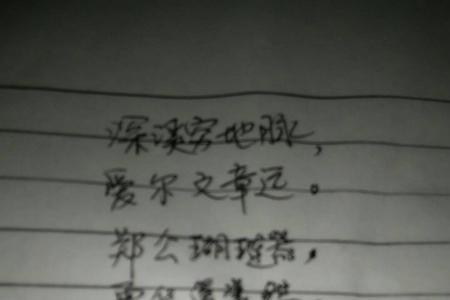 深溪穷地脉，
爱尔文章远。
郑公瑚琏器，